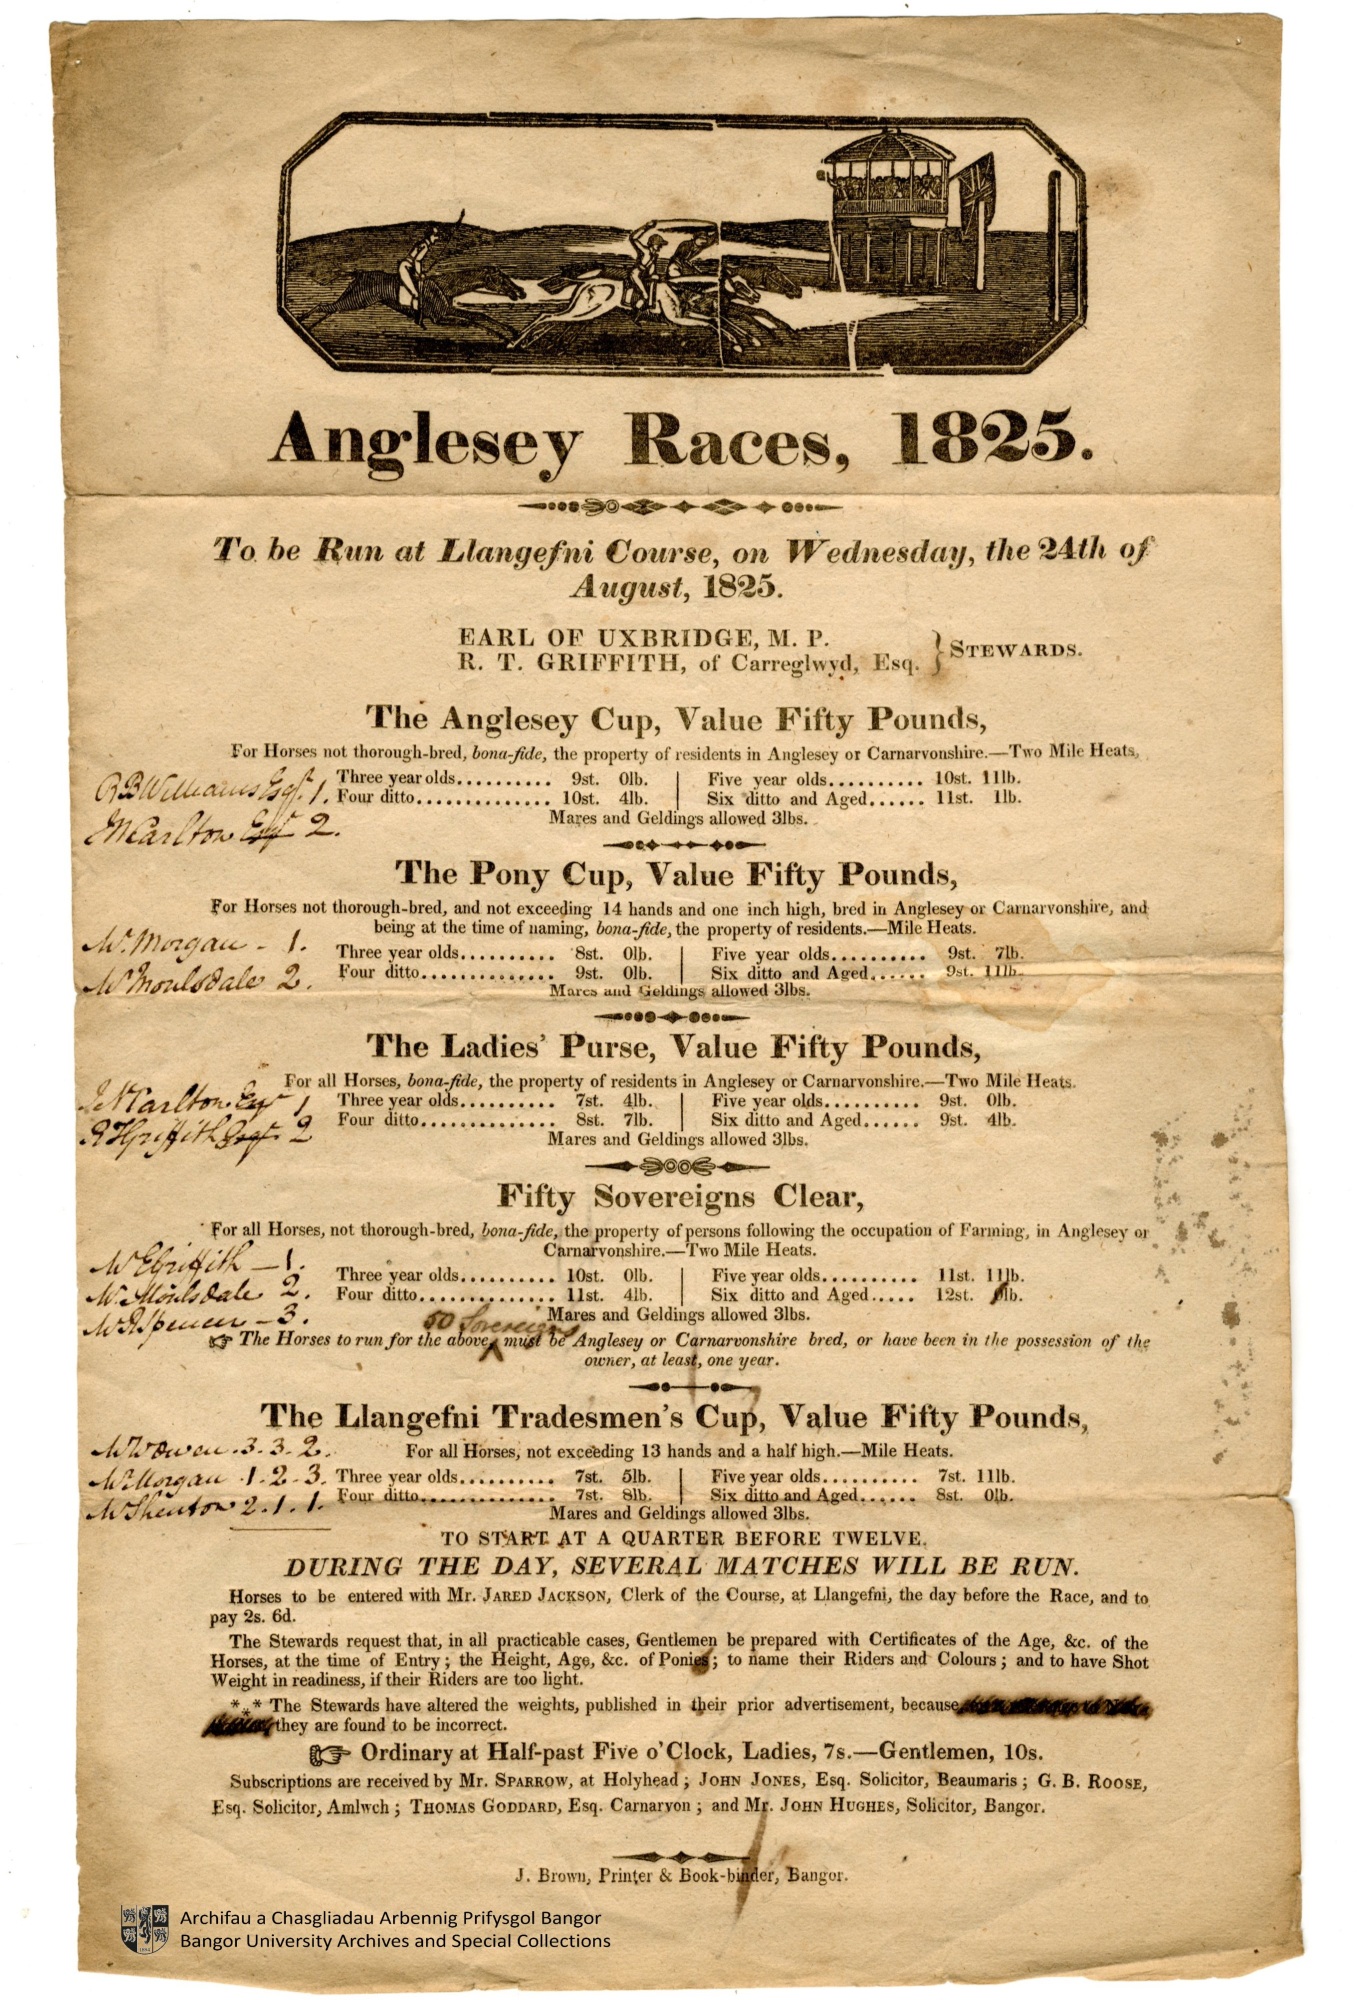 Anglesey Races, 1825.
To be Run at Llangefni Course, on Wednesday, the 24th of
August, 1825.
EARL OF UXBRIDGE, M. P.
R. T. GRIFFITH, of Carreglwyd, Esq. } STEWARDS.
The Anglesey Cup, Value Fifty Pounds,
For Horses not thorough-bred, bona-fide, the property of residents in Anglesey or Carnarvonshire.—Two Mile Heats.
RBWilliams Esqr. 1.
Three year olds.......... 9st. 0lb. | Five year olds.......... 10st. 11lb.
Four ditto.............. 10st. 4lb. | Six ditto and Aged...... 11st. 1lb.
Carlton Esqr 2.
Mares and Geldings allowed 3lbs.
The Pony Cup, Value Fifty Pounds,
For Horses not thorough-bred, and not exceeding 14 hands and one inch high, bred in Anglesey or Carnarvonshire, and
being at the time of naming, bona-fide, the property of residents.—Mile Heats.
Mr. Morgan - 1.
Three year olds.......... 8st. 0lb. | Five year olds.......... 9st. 7lb.
Mr Moulsdale 2.
Four ditto.............. 9st. 0lb. | Six ditto and Aged...... 9st. 11lb.
Mares and Geldings allowed 3lbs.
The Ladies' Purse, Value Fifty Pounds,
For all Horses, bona-fide, the property of residents in Anglesey or Carnarvonshire.—Two Mile Heats.
Carlton Esqr 1
Three year olds.......... 7st. 4lb. | Five year olds.......... 9st. 0lb.
Griffith Esqr. 2
Four ditto.............. 8st. 7lb. | Six ditto and Aged...... 9st. 4lb.
Mares and Geldings allowed 3lbs.
Fifty Sovereigns Clear,
For all Horses, not thorough-bred, bona-fide, the property of persons following the occupation of Farming, in Anglesey or
Carnarvonshire.—Two Mile Heats.
Mr EGriffith - 1.
Three year olds.......... 10st. 0lb. | Five year olds.......... 11st. 11lb.
Mr. Moulsdale 2.
Four ditto.............. 11st. 4lb. | Six ditto and Aged..... 12st. lb.
Mr RSpencer - 3.
Mares and Geldings allowed 3lbs.
50 Sovereigns
☞ The Horses to run for the above, must be Anglesey or Carnarvonshire bred, or have been in the possession of the
owner, at least, one year.
The Llangefni Tradesmen's Cup, Value Fifty Pounds,
Mr WOwen . 3. 3. 2.
For all Horses, not exceeding 13 hands and a half high.—Mile Heats.
Mr. Morgan . 1. 2. 3.
Three year olds.......... 7st. 5lb. | Five year olds.......... 7st. 11lb.
Mr Shenton 2. 1. 1.
Four ditto.............. 7st. 8lb. | Six ditto and Aged...... 8st. 0lb.
Mares and Geldings allowed 3lbs.
TO START AT A QUARTER BEFORE TWELVE.
DURING THE DAY, SEVERAL MATCHES WILL BE RUN.
Horses to be entered with Mr. JARED JACKSON, Clerk of the Course, at Llangefni, the day before the Race, and to
pay 2s. 6d.
The Stewards request that, in all practicable cases, Gentlemen be prepared with Certificates of the Age, &c. of the
Horses, at the time of Entry; the Height, Age, &c. of Ponies; to name their Riders and Colours; and to have Shot
Weight in readiness, if their Riders are too light.
*** The Stewards have altered the weights, published in their prior advertisement, because
they are found to be incorrect.
☞ Ordinary at Half-past Five o'Clock, Ladies, 7s.—Gentlemen, 10s.
Subscriptions are received by Mr. SPARROW, at Holyhead; JOHN JONES, Esq. Solicitor, Beaumaris; G. B. ROOSE,
Esq. Solicitor, Amlwch; THOMAS GODDARD, Esq. Carnarvon; and Mr. JOHN HUGHES, Solicitor, Bangor.
J. Brown, Printer & Book-binder, Bangor.
Archifau a Chasgliadau Arbennig Prifysgol Bangor
Bangor University Archives and Special Collections